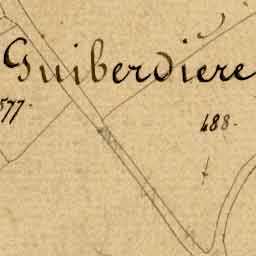 Guiberdière
577.
488.